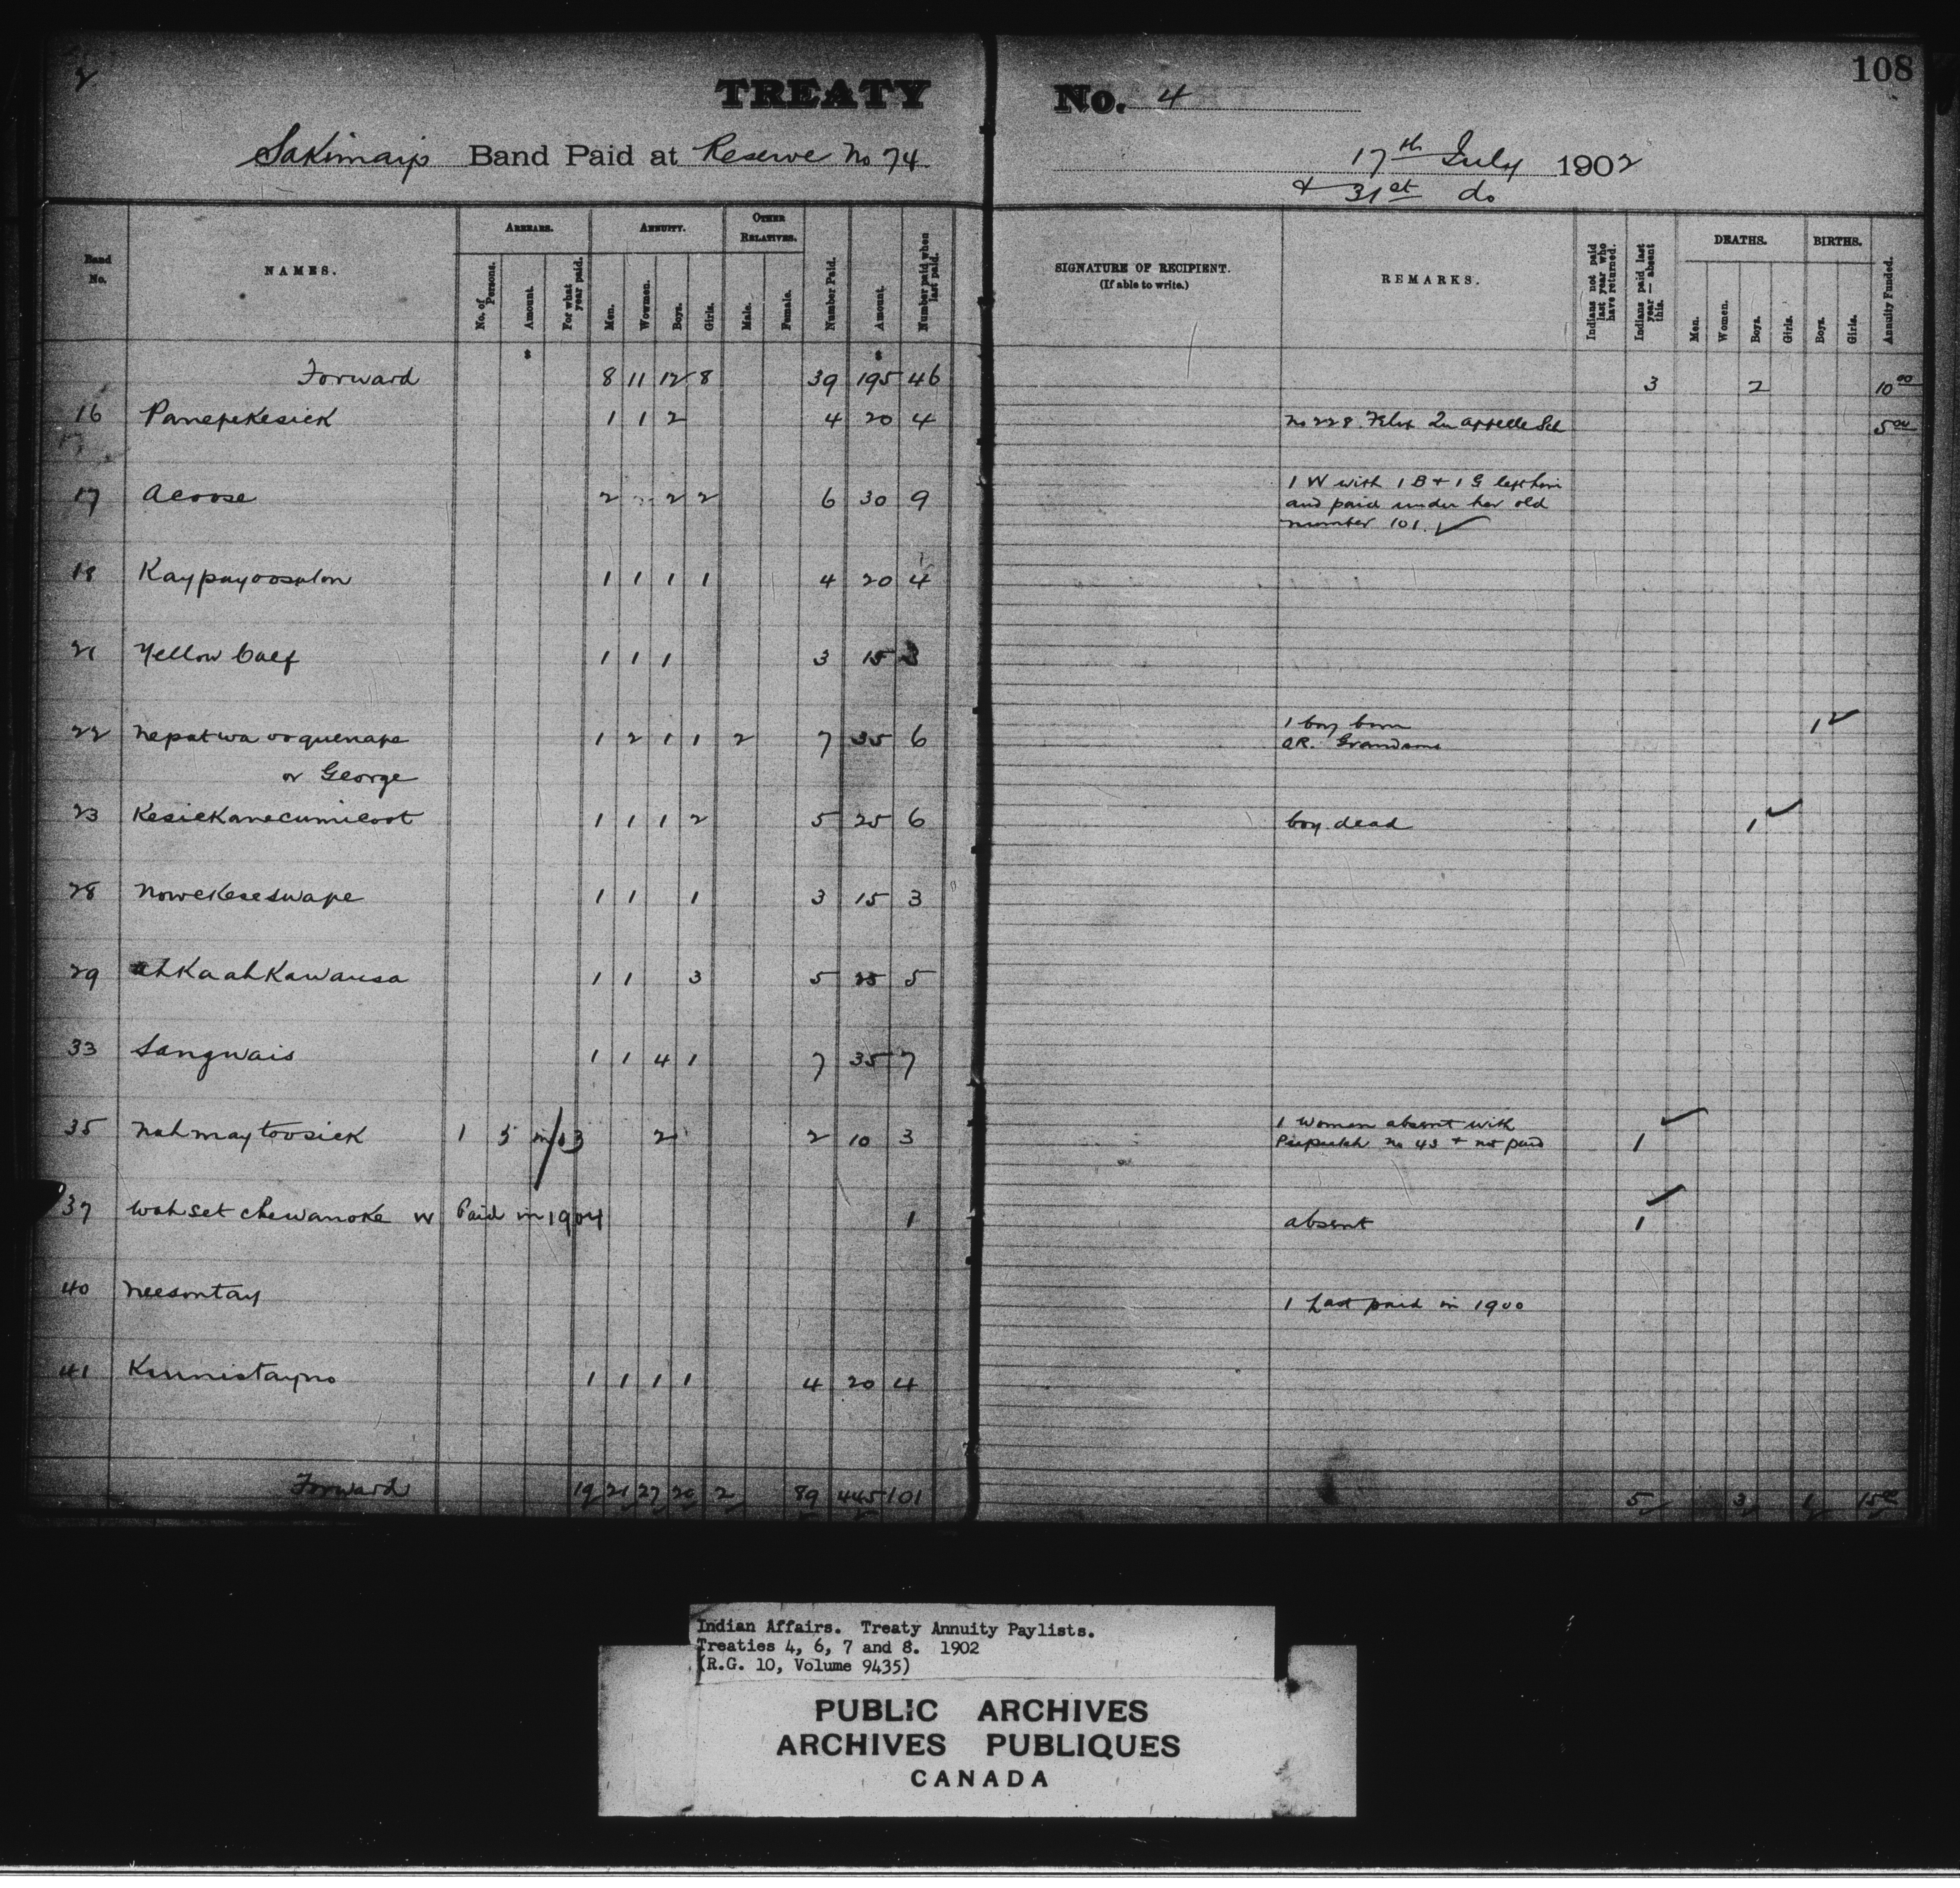 2
108
TREATY No. 4
Sakimay's Band Paid at Reserve No 74 17th July 1902
& 31st do
Band No. NAMES. ARREARS. ANNUITY. OTHER RELATIVES. Number Paid. Amount. Number paid when last paid. SIGNATURE OF RECIPIENT. (If able to write.) REMARKS. Indians not paid last year who have returned. Indians paid last year — absent this. DEATHS. BIRTHS. Annuity Funded.
No. of Persons. Amount. For what year paid. Men. Wowmen. Boys. Girls. Male. Female. Men. Women. Boys. Girls. Boys. Girls.
$ $
Forward 8 11 12 8 39 195 46 3 2 10 00
16 Panepekesick 1 1 2 4 20 4 No 228 Qu'appelle Sch 5 00
17 Acoose 2 2 2 6 30 9 1 W with 1 B + 1 G left him
and paid under her old
number 101. ✓
18 Kaypayoosalon 1 1 1 1 4 20 4
21 Yellow Calf 1 1 1 3 15 3
22 Nepatwaooquenape 1 2 1 1 2 7 35 6 1 boy born 1 ✓
or George OR. Grandsons
23 Kesickanecumicoot 1 1 1 2 5 25 6 boy dead 1 ✓
28 Nowekeseswape 1 1 1 3 15 3
29 ahkaahkawausa 1 1 3 5 25 5
33 Sangwais 1 1 4 1 7 35 7
35 Nahmaytoosick 1 5 in/03 2 2 10 3 1 woman absent with ✓
No 43 + not paid 1
37 Wahsetchewanoke W Paid in 1904 1 absent 1 ✓
40 Neesontay 1 Last paid in 1900
41 Kinnistayno 1 1 1 1 4 20 4
Forward 19 21 27 20 2 89 445 101 5 3 1 15 00
Indian Affairs. Treaty Annuity Paylists.
Treaties 4, 6, 7 and 8. 1902
(R.G. 10, Volume 9435)
PUBLIC ARCHIVES
ARCHIVES PUBLIQUES
CANADA